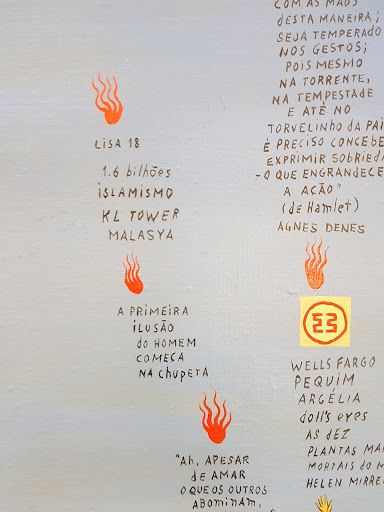 COM AS MÃOS
DESTA MANEIRA;
SEJA TEMPERADO
NOS GESTOS;
POIS MESMO
NA TORRENTE,
NA TEMPESTADE
E ATÉ NO
TORVELINHO DA PAI
É PRECISO CONCEBE
EXPRIMIR SOBRIEDA
-O QUE ENGRANDECE
A AÇÃO"
(de Hamlet)
AGNES DENES
LISA 18
1.6 bilhões
ISLAMISMO
KL TOWER
MALASYA
A PRIMEIRA
ILUSÃO
do HOMEM
COMEÇA
NA chupeta
WELLS FARGO
PEQUIM
ARGÉLIA
doll's eyes
AS dEZ
PLANTAS MAI
MORTAIS do M
HELEN MIRRE
"Ah, APESAR
de AMAR
O QUE OS OUTROS
ABOMINAM,